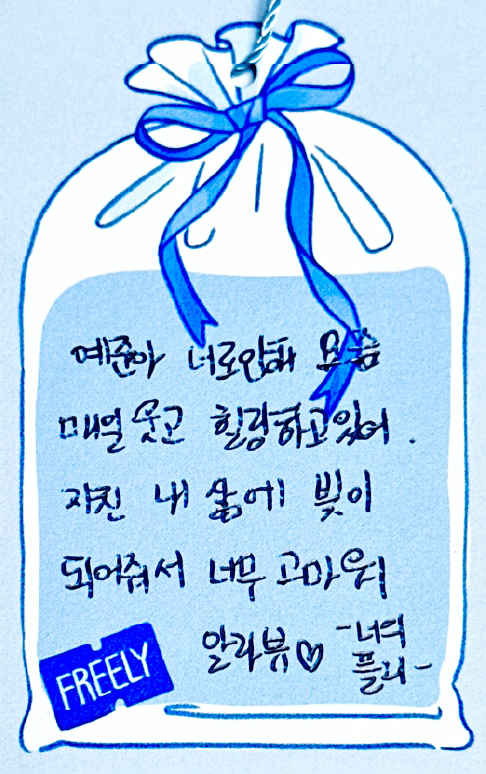 예준아 너로인해 요즘
매일 웃고 힐링하고있어.
지친 내 삶에 빛이
되어줘서 너무 고마워
알라뷰♡ -너의
플리-
FREELY